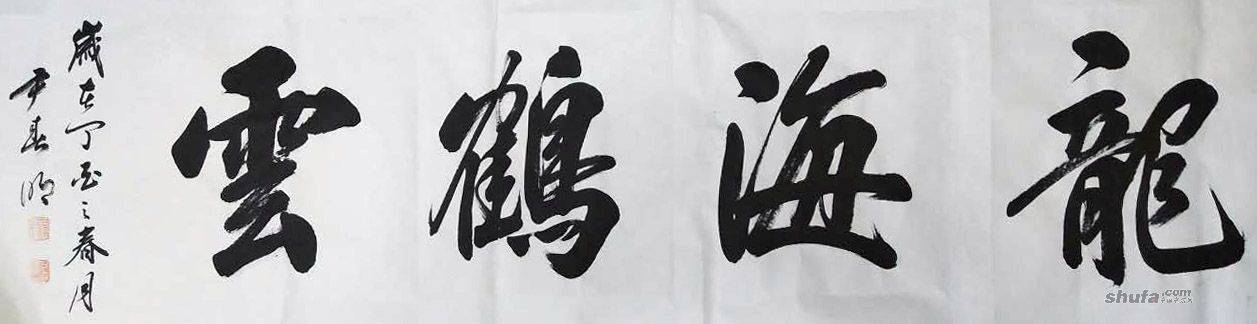 龍海鶴雲
歲在丁酉之春月
春明
shufa.com